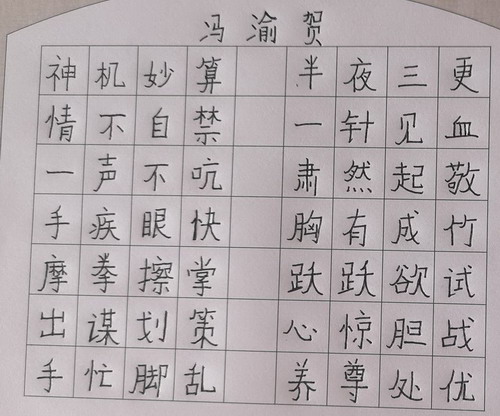 冯渝贺
神机妙算 半夜三更
情不自禁 一针见血
一声不吭 肃然起敬
手疾眼快 胸有成竹
摩拳擦掌 跃跃欲试
出谋划策 心惊胆战
手忙脚乱 养尊处优